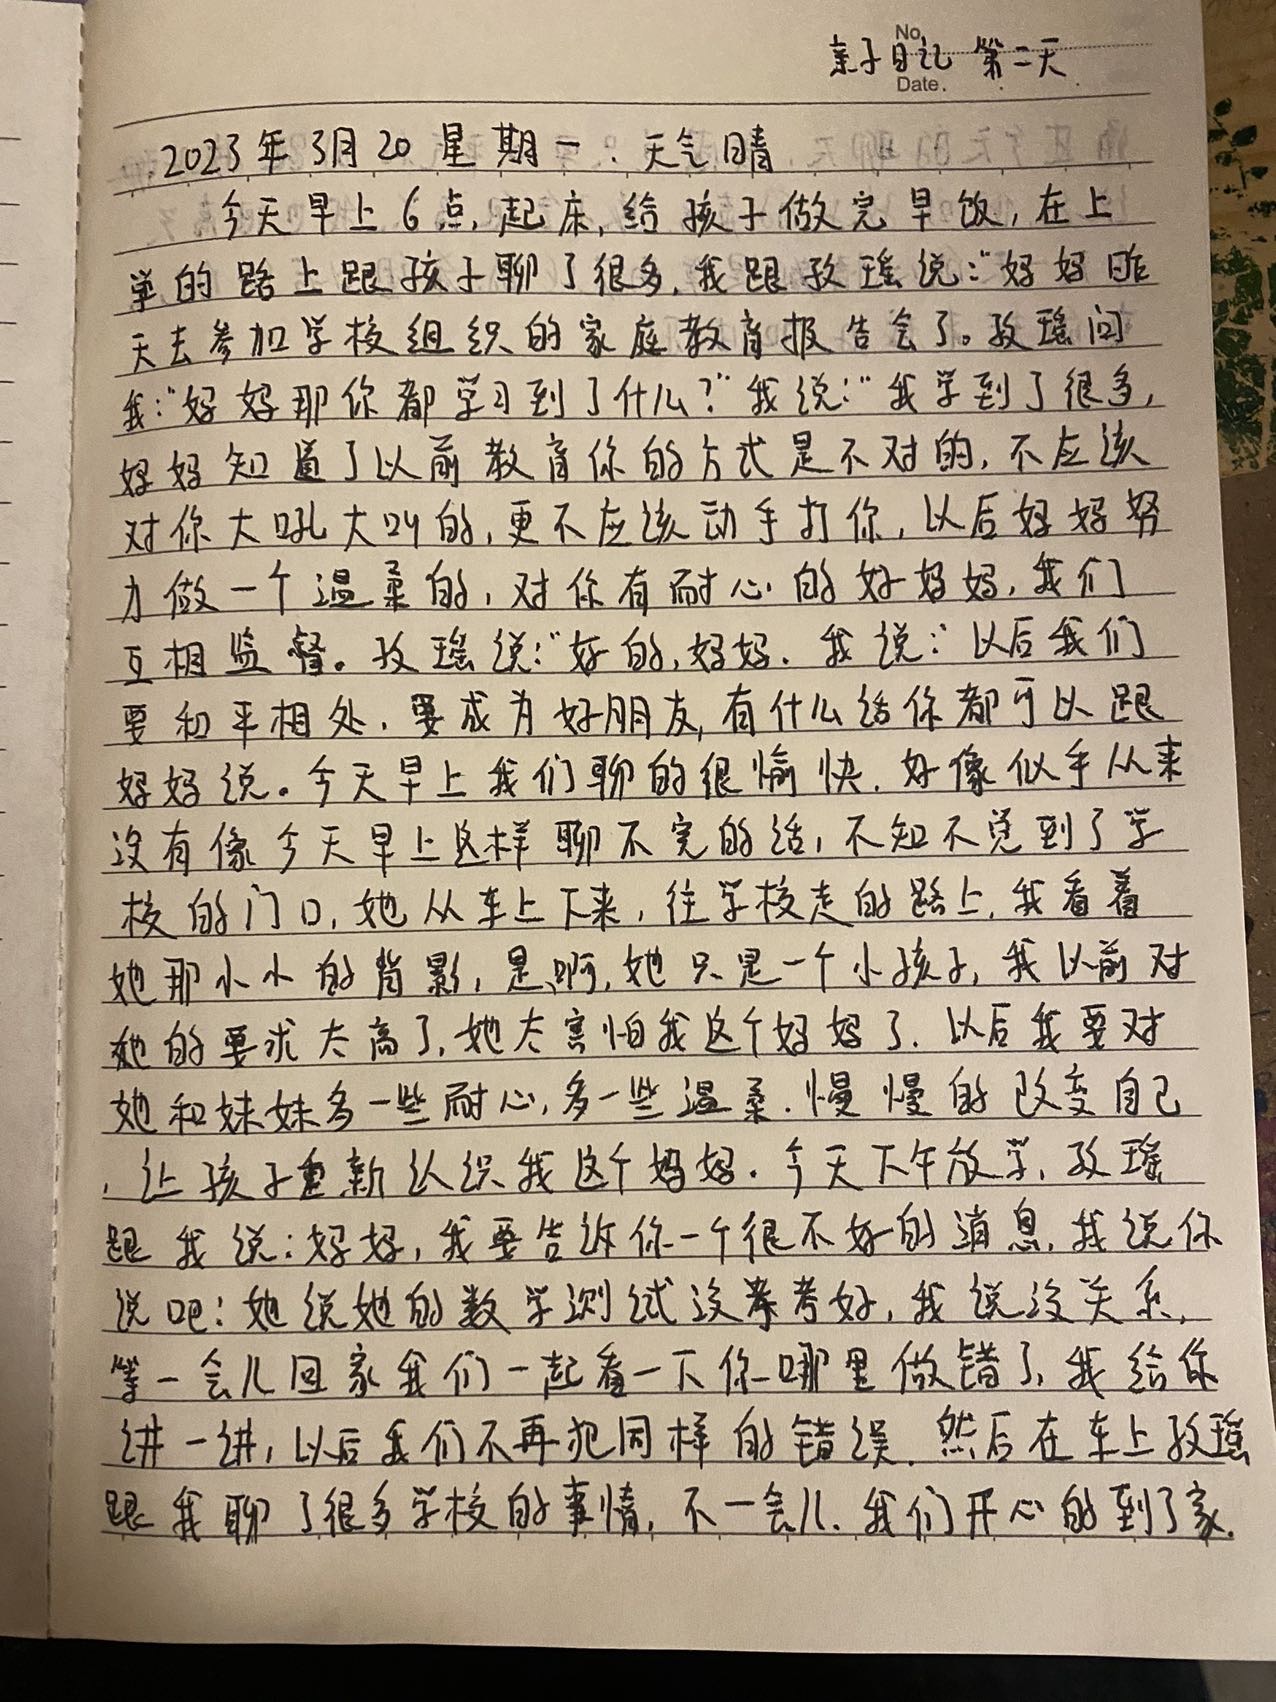 No.
亲子日记 第二天
Date.
2023年3月20 星期一. 天气晴
今天早上6点, 起床, 给孩子做完早饭, 在上
学的路上跟孩子聊了很多, 我跟孜瑶说:“妈妈昨
天去参加学校组织的家庭教育报告会了。孜瑶问
我:“妈妈那你都学习到了什么?”我说:“我学到了很多,
妈妈知道了以前教育你的方式是不对的, 不应该
对你大吼大叫的, 更不应该动手打你, 以后妈妈努
力做一个温柔的, 对你有耐心的好妈妈, 我们
互相监督。孜瑶说:“好的, 妈妈. 我说:“以后我们
要和平相处, 要成为好朋友, 有什么话你都可以跟
妈妈说。今天早上我们聊的很愉快. 好像似乎从来
没有像今天早上这样聊不完的话, 不知不觉到了学
校的门口, 她从车上下来, 往学校走的路上, 我看着
她那小小的背影, 是啊, 她只是一个小孩子, 我以前对
她的要求太高了, 她太害怕我这个妈妈了. 以后我要对
她和妹妹多一些耐心, 多一些温柔. 慢慢的改变自己
, 让孩子重新认识我这个妈妈. 今天下午放学, 孜瑶
跟我说: 妈妈, 我要告诉你一个很不好的消息, 我说你
说吧: 她说她的数学测试没考好, 我说没关系,
等一会儿回家我们一起看一下你哪里做错了, 我给你
讲一讲, 以后我们不再犯同样的错误. 然后在车上孜瑶
跟我聊了很多学校的事情, 不一会儿. 我们开心的到了家.